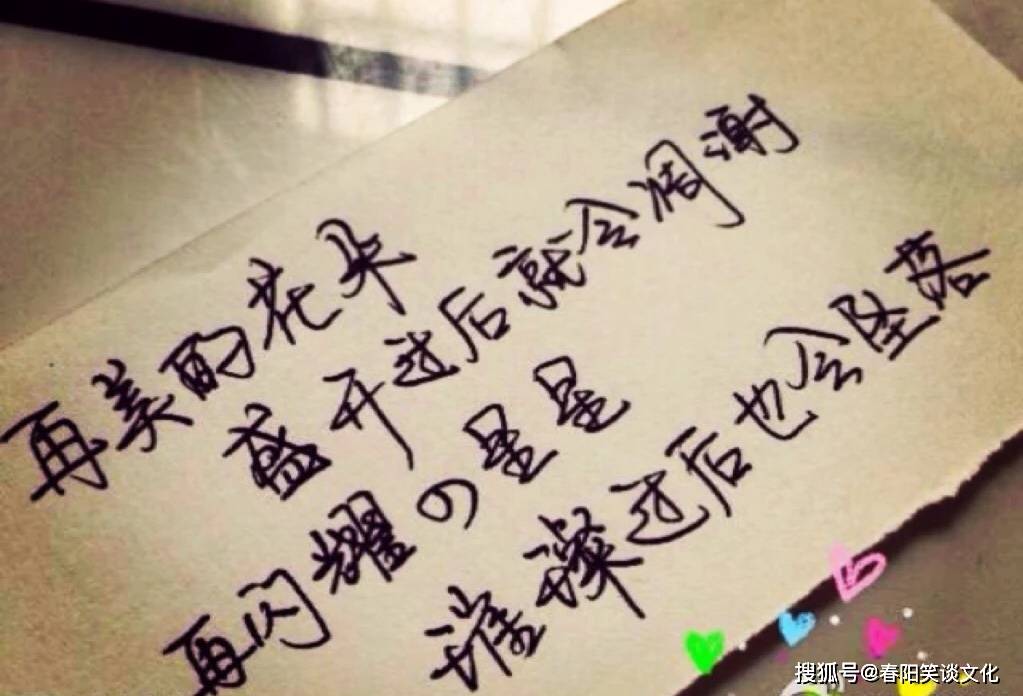 再美的花朵
盛开过后就会凋谢
再闪耀の星星
璀璨过后也会坠落
搜狐号@春阳笑谈文化